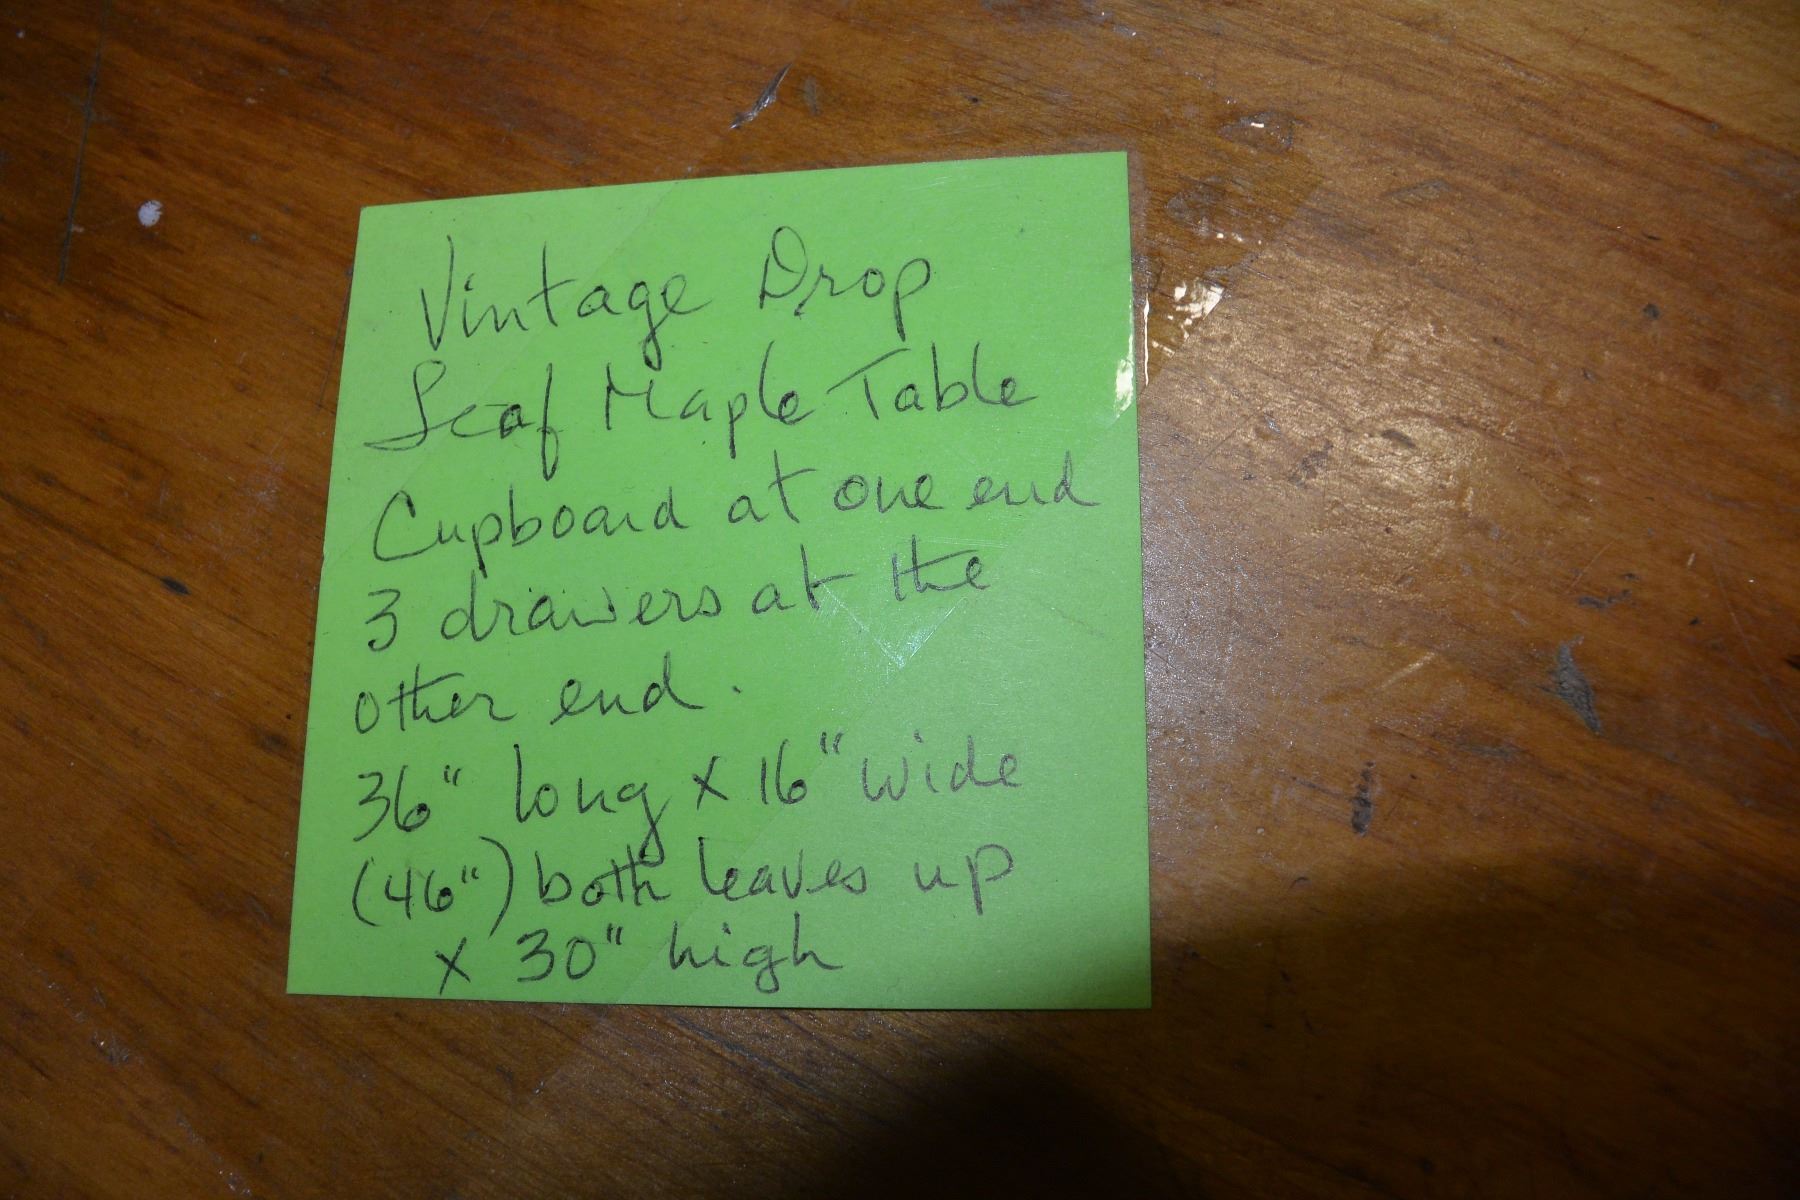 Vintage Drop
Leaf Maple Table
Cupboard at one end
3 drawers at the
other end.
36" long x 16" wide
(46") both leaves up
x 30" high